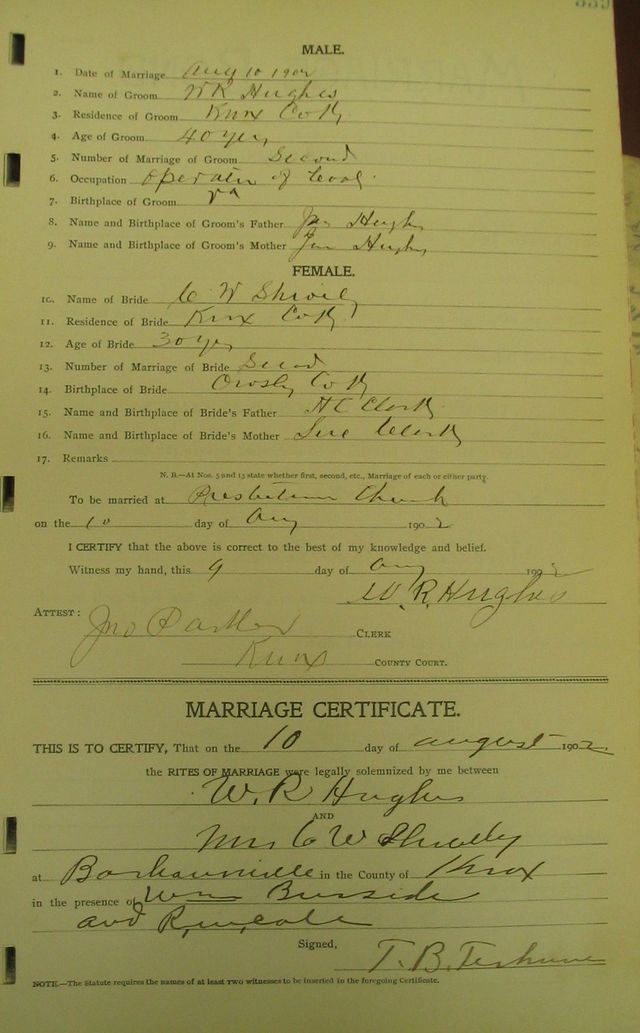 MALE.
1. Date of Marriage Aug 10 1902
2. Name of Groom W R Hughes
3. Residence of Groom Knox Co Ky
4. Age of Groom 40 yrs
5. Number of Marriage of Groom Second
6. Occupation Operator of Coal
7. Birthplace of Groom Va
8. Name and Birthplace of Groom's Father Hughes
9. Name and Birthplace of Groom's Mother Hughes
FEMALE.
10. Name of Bride C W Shively
11. Residence of Bride Knox Co Ky
12. Age of Bride 30 yrs
13. Number of Marriage of Bride Second
14. Birthplace of Bride Owsley Co Ky
15. Name and Birthplace of Bride's Father H C Clark
16. Name and Birthplace of Bride's Mother Sue Clark
17. Remarks
N. B.—At Nos. 5 and 13 state whether first, second, etc., Marriage of each or either party.
To be married at Presbiterian Church
on the 10 day of Aug 1902
I CERTIFY that the above is correct to the best of my knowledge and belief.
Witness my hand, this 9 day of Aug 1902
W. R. Hughes
ATTEST: Jno Parker CLERK
Knox COUNTY COURT.
MARRIAGE CERTIFICATE.
THIS IS TO CERTIFY, That on the 10 day of August 1902
the RITES OF MARRIAGE were legally solemnized by me between
W. R Hughes
AND
Mrs C W Shively
at Barbourville in the County of Knox
in the presence of Wm Burnside
and
Signed, T. B. Terhune
NOTE.—The Statute requires the names of at least two witnesses to be inserted in the foregoing Certificate.